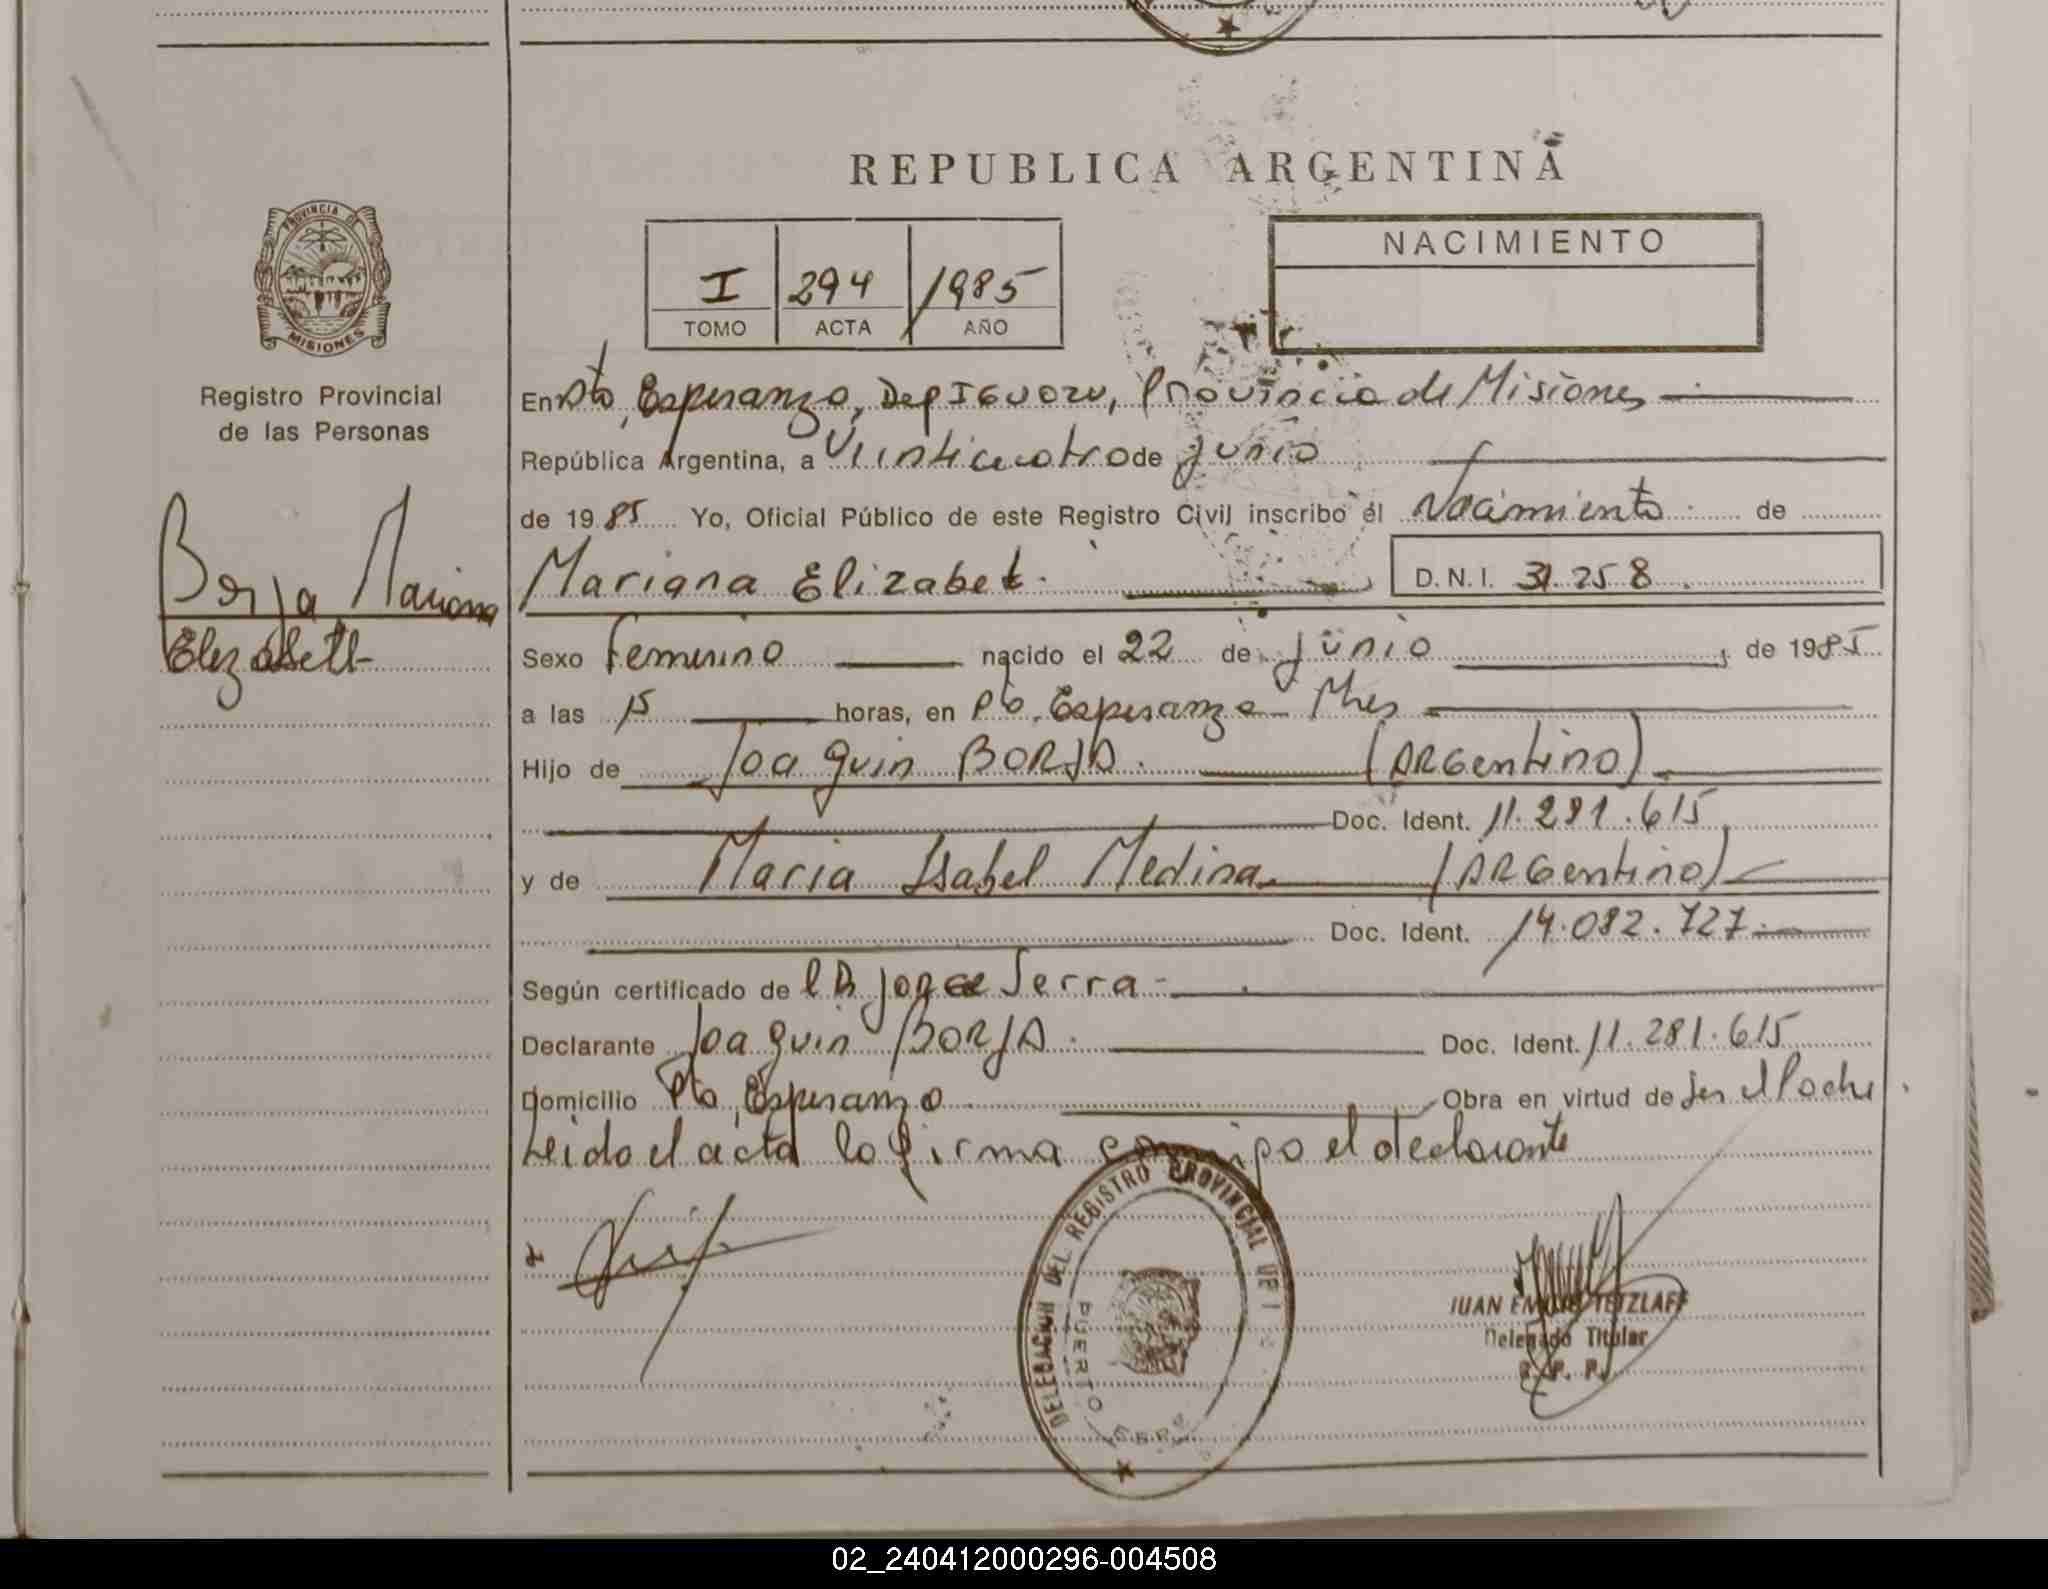 REPUBLICA ARGENTINA
PROVINCIA DE
MISIONES
Registro Provincial
de las Personas
I 294 1985
TOMO ACTA AÑO
NACIMIENTO
En Pto, Esperanza, Dep Iguazu, Provincia de Misiones
República Argentina, a Veinticuatro de junio
de 1985 Yo, Oficial Público de este Registro Civil inscribo el Nacimiento de
Borja Mariana
Elizabeth
Mariana Elizabet. D.N.I. 31.258
Sexo Femenino nacido el 22 de junio, de 1985
a las 15 horas, en Pto. Esperanza - Mnes
Hijo de Joaquin BORJA. (ARGentino)
Doc. Ident. 11.281.615
y de Maria Isabel Medina (ARGentino)
Doc. Ident. 14.082.727.
Según certificado de Jorge Serra -
Declarante Joaquin BORJA. Doc. Ident. 11.281.615
Domicilio Pto, Esperanza Obra en virtud de Ser el Padre
Leido el acta la firma conmigo el declarante
DELEGACION DEL REGISTRO PROVINCIAL DE
PUERTO
JUAN EMILIO TETZLAFF
Delegado Titular
R. P. P.
02_240412000296-004508